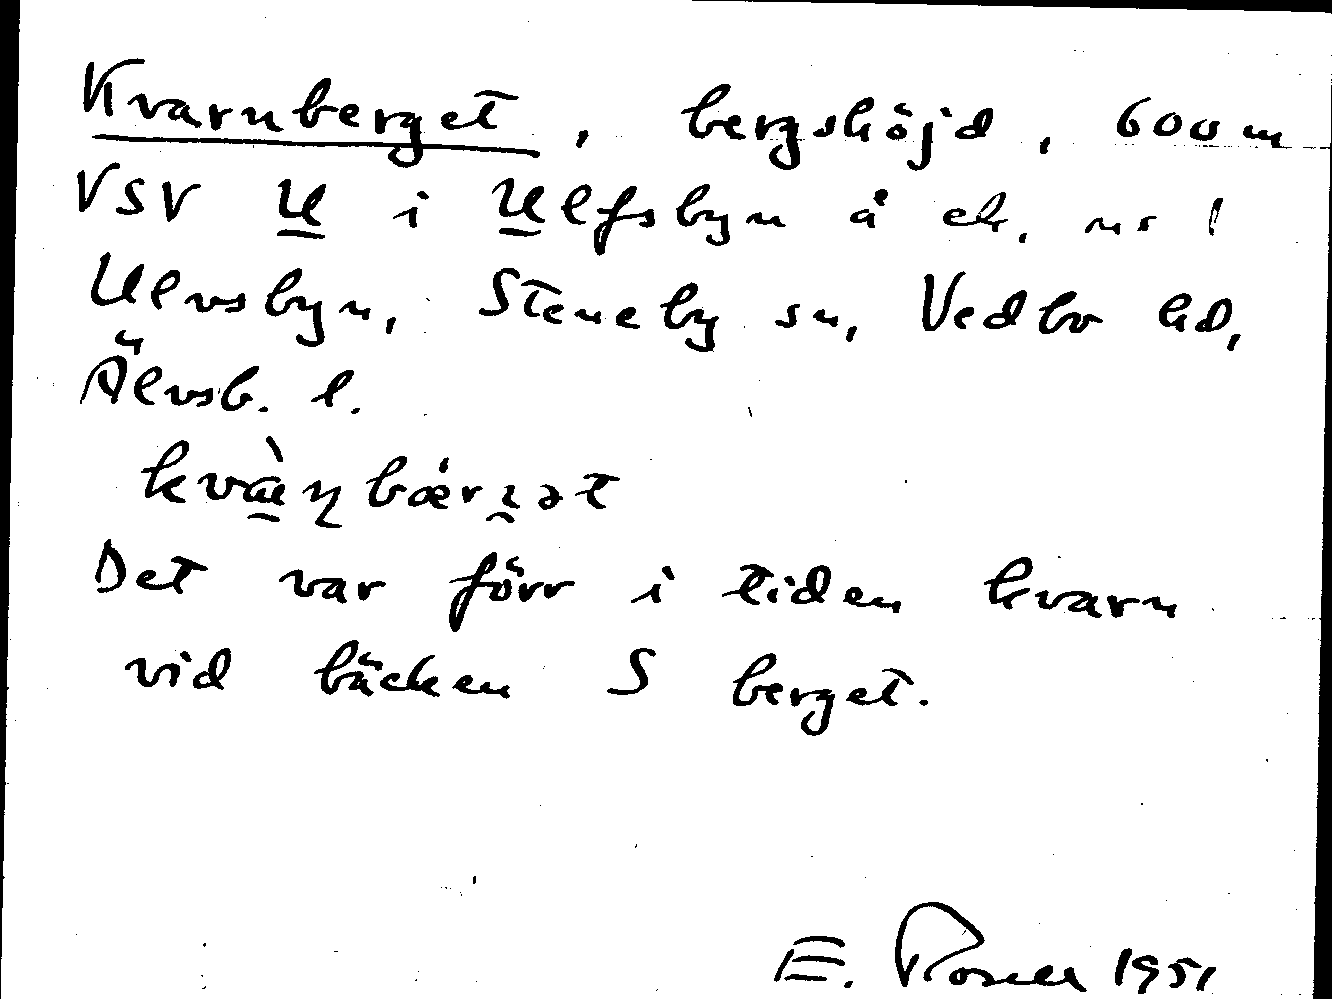 Kvarnberget, bergshöjd, 600 m
VSV U i Ulfsbyn å ek. nr 1
Ulvsbyn, Steneby sn, Vedbo hd,
Älvsb. l.
Det var förr i tiden kvarn
vid bäcken S berget.
E. Rosell 1951